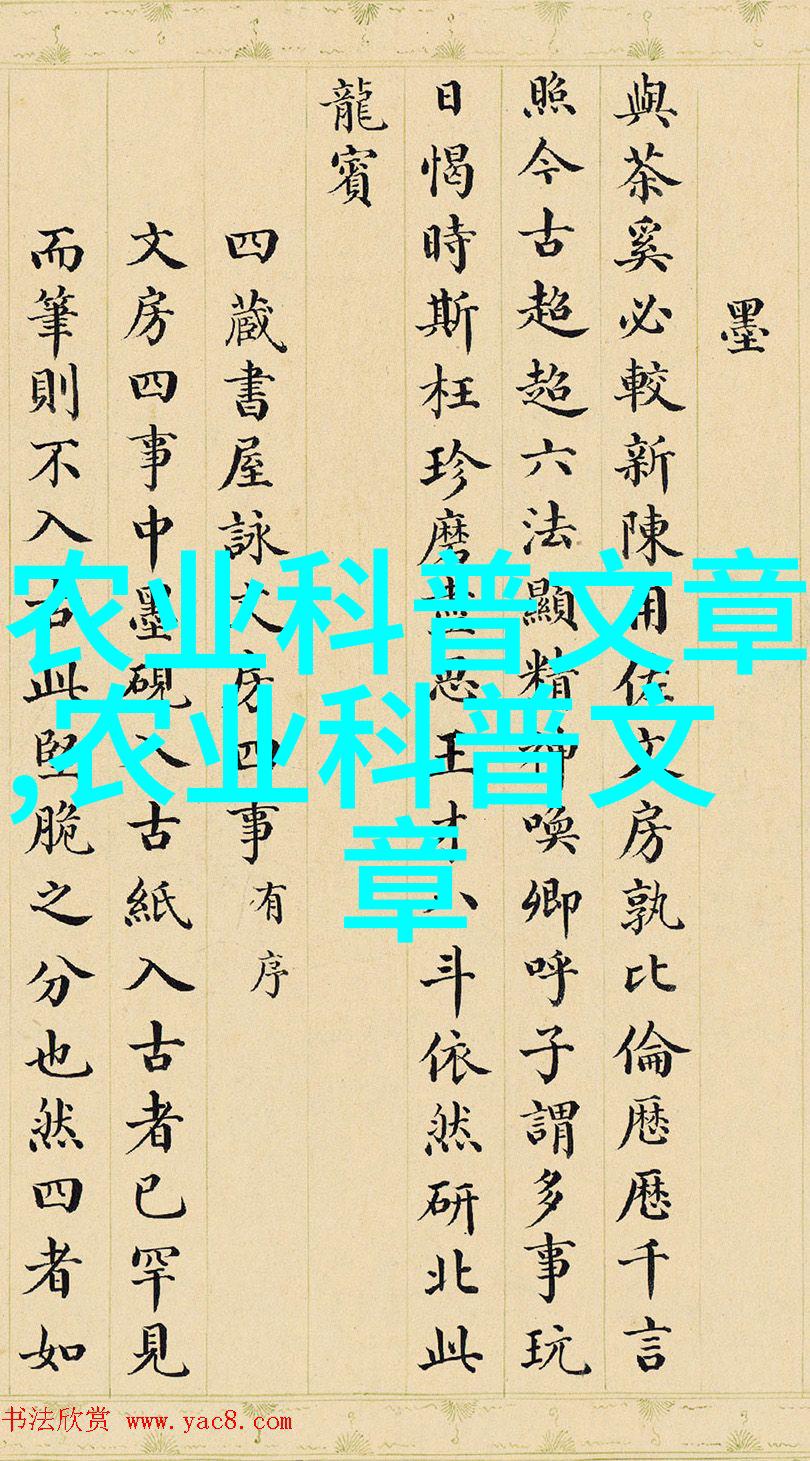 墨
與茶奚必較新陳用佐文房孰比倫歷歷千言
照今古超超六法顯精神喚卿呼子謂多事玩
日愒時斯枉珍磨盡思王才八斗依然研北此
龍賓
四蔵書屋詠文房四事有序
文房四事中墨硯入古紙入古者已罕見
而筆則不入古此堅脆之分也然四者如
农业科普文章
,农业科普文
章
书法欣赏 www.yac8.com